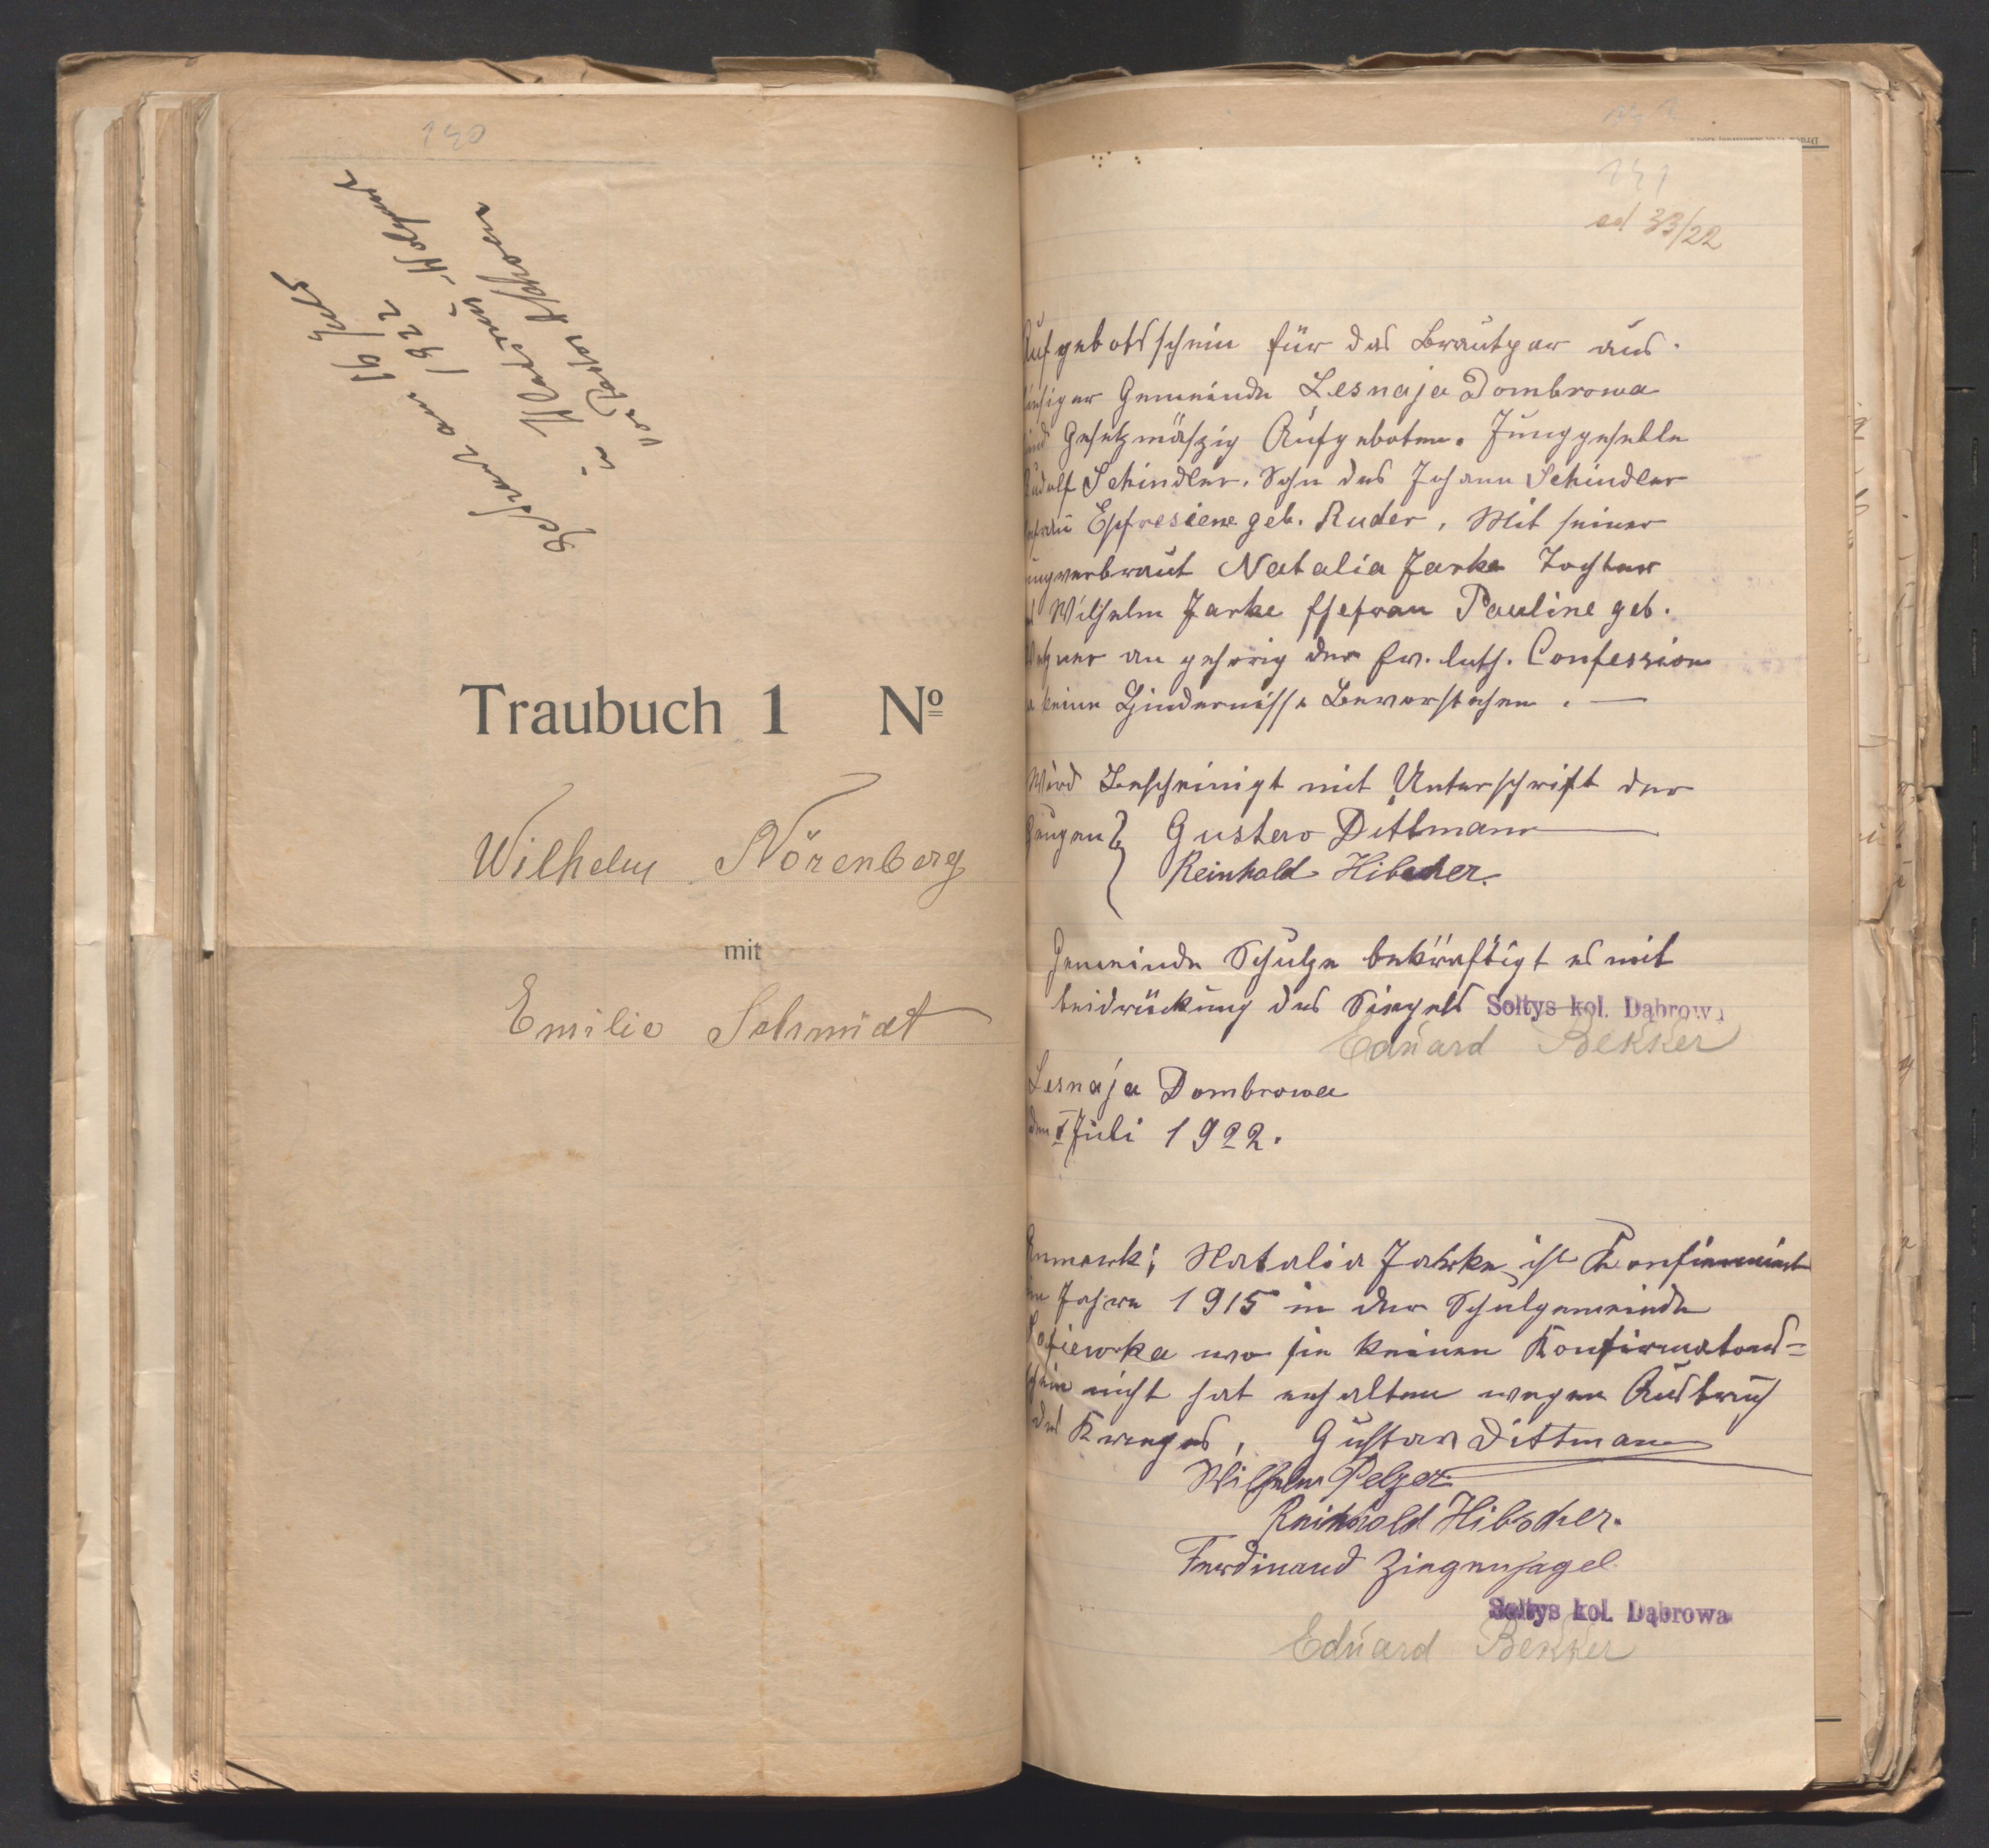 140
getraut am 16 Juli
1922
in Wladimir-Wolynsk
von Pastor
Traubuch 1 Nº
Wilhelm Nörenberg
mit
Emilie Schmidt
141
ad 33/22
Aufgebotsschein für das Brautpar aus
hiesiger Gemeinde Lesnaja Dombrowa
sind Gesetzmäszig Aufgeboten. Junggeselle
Rudolf Schindler. Sohn des Johann Schindler
Ehfrau Epfresiene geb. Ruder, Mit seiner
Jungverbraut Natalia Jarke Tochter
des Wilhelm Jarke Ehefrau Pauline geb.
an gehörig der Ew. luth. Confession
keine Hindernisse Bevorstehen. —
Wird Bescheinigt mit Unterschrift der
Zeugen Gustav Dittmann
Reinhold Hibscher.
Gemeinde Schulze bekräftigt es mit
beidrückung des Siegels Sołtys kol. Dąbrowa
Eduard Bekker
Lesnaja Dombrowa
den Juli 1922.
Anmerk; Natalia Jahrke ist Konfirmiert
im Jahre 1915 in der Schulgemeinde
wo sie keinen Konfirmations=
schein nicht hat erhalten wegen Ausbruch
des Krieges, Gustav Dittmann
Wilhelm Pelzer
Reinhold Hibscher.
Ferdinand Ziegenhagel
Sołtys kol. Dąbrowa
Eduard Bekker